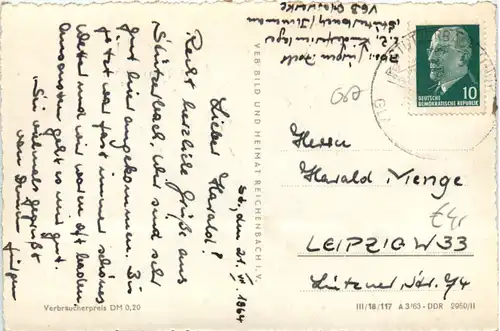 St., den 21. VII. 1964
Lieber Harald!
Recht herzliche Grüße aus
Stützerbach. Wir sind sehr
gut hier angekommen. Bis
jetzt war fast immer schönes
Wetter und wir waren oft baden.
Ansonsten geht es mir gut.
Sei vielmals gegrüßt
von Deinem Jürgen
Verbraucherpreis DM 0,20
VEB BILD UND HEIMAT REICHENBACH I. V.
Abs.: Jürgen
z. Z.
Stützerbach/Ilmenau
VEB
DEUTSCHE
DEMOKRATISCHE REPUBLIK
10
Herrn
Harald Menge
LEIPZIG W 33
Lützner Str.
III/18/117 A 3/63 - DDR 2950/II